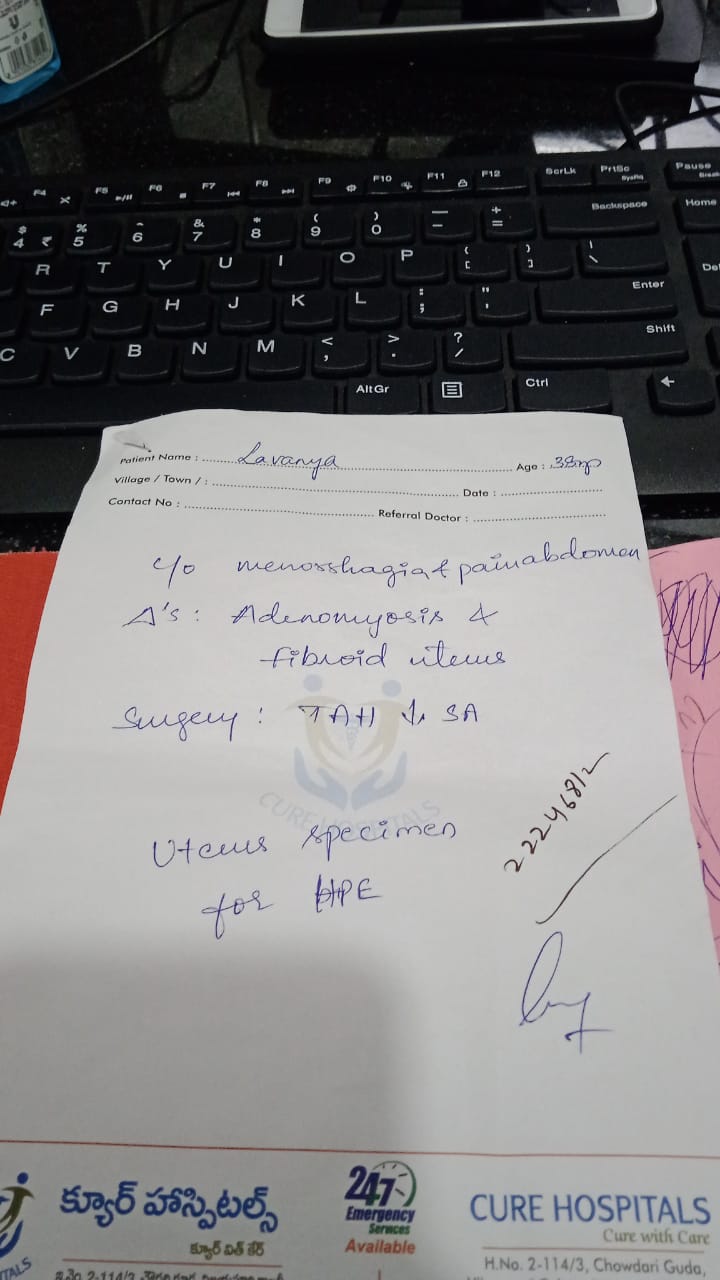 F4 F5 F6 F7 F8 F9 F10 F11 F12 ScrLk PrtSc SysRq Pause Break
$ 4 ₹ % 5 ^ 6 & 7 * 8 ( 9 ) 0 — - + = Backspace Home
R T Y U I O P { [ } ] | \ Del
F G H J K L : ; " ' Enter
C V B N M < , > . ? / Shift
AltGr Ctrl
Patient Name : Lavanya Age : 38
Village / Town / : Date :
Contact No : Referral Doctor :
c/o menorrhagia & pain abdomen
Δ's : Adenomyosis &
fibroid uterus
Surgery : TAH SA
CURE HOSPITALS
22246812
Uterus specimen
for HPE
క్యూర్ హాస్పిటల్స్
క్యూర్ విత్ కేర్
24/7
Emergency
Services
Available
CURE HOSPITALS
Cure with Care
H.No. 2-114/3, Chowdari Guda,